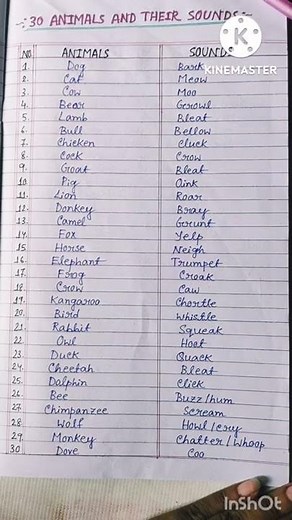 30 ANIMALS AND THEIR SOUNDS
NO ANIMALS SOUNDS
1. Dog Bark
2. Cat Meow
3. Cow Moo
4. Bear Growl
5. Lamb Bleat
6. Bull Bellow
7. Chicken Cluck
8. Cock Crow
9. Goat Bleat
10. Pig Oink
11. Lion Roar
12. Donkey Bray
13. Camel Grunt
14. Fox Yelp
15. Horse Neigh
16. Elephant Trumpet
17. Frog Croak
18. Crow Caw
19. Kangaroo Chortle
20. Bird Whistle
21. Rabbit Squeak
22. Owl Hoot
23. Duck Quack
24. Cheetah Bleat
25. Dalphin Click
26. Bee Buzz/hum
27. Chimpanzee Scream
28. Wolf Howl/cry
29. Monkey Chatter/Whoop
30. Dove Coo
KINEMASTER
InShOt